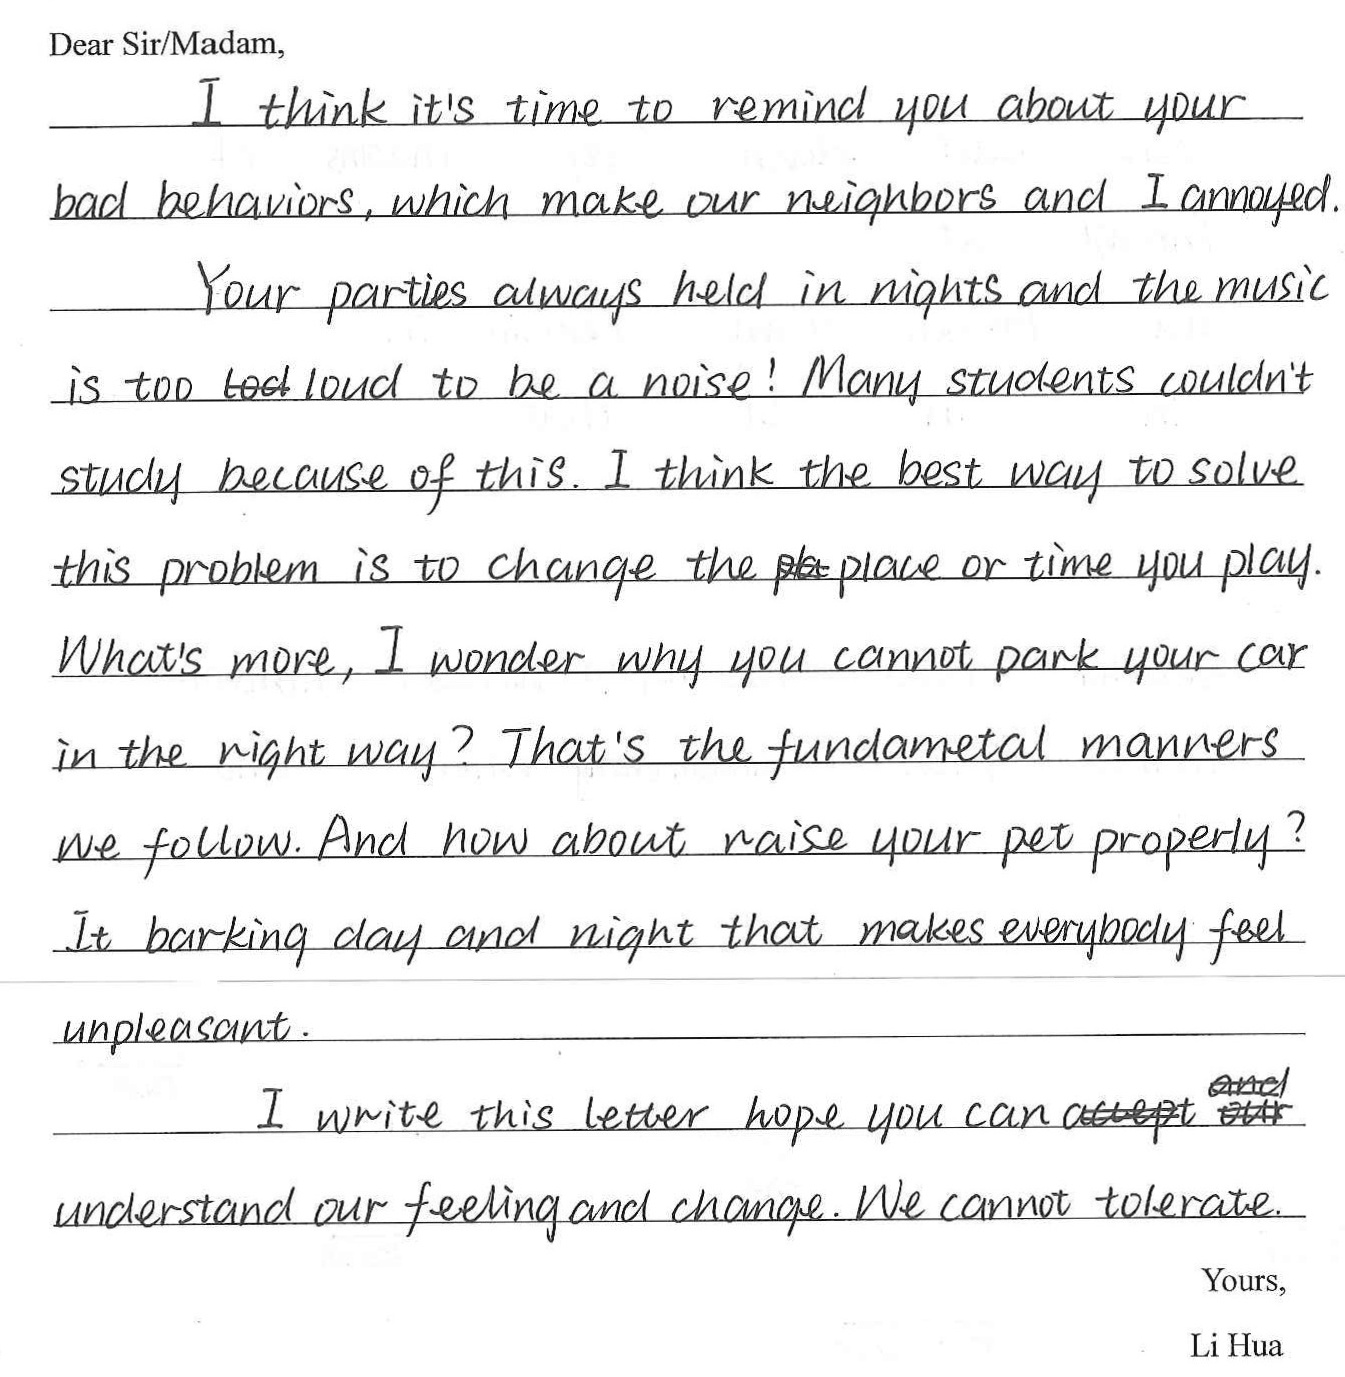 Dear Sir/Madam,
I think it's time to remind you about your
bad behaviors, which make our neighbors and I annoyed.
Your parties always held in nights and the music
is too loud to be a noise! Many students couldn't
study because of this. I think the best way to solve
this problem is to change the place or time you play.
What's more, I wonder why you cannot park your car
in the right way? That's the fundametal manners
we follow. And how about raise your pet properly?
It barking day and night that makes everybody feel
unpleasant.
I write this letter hope you can
understand our feeling and change. We cannot tolerate.
Yours,
Li Hua